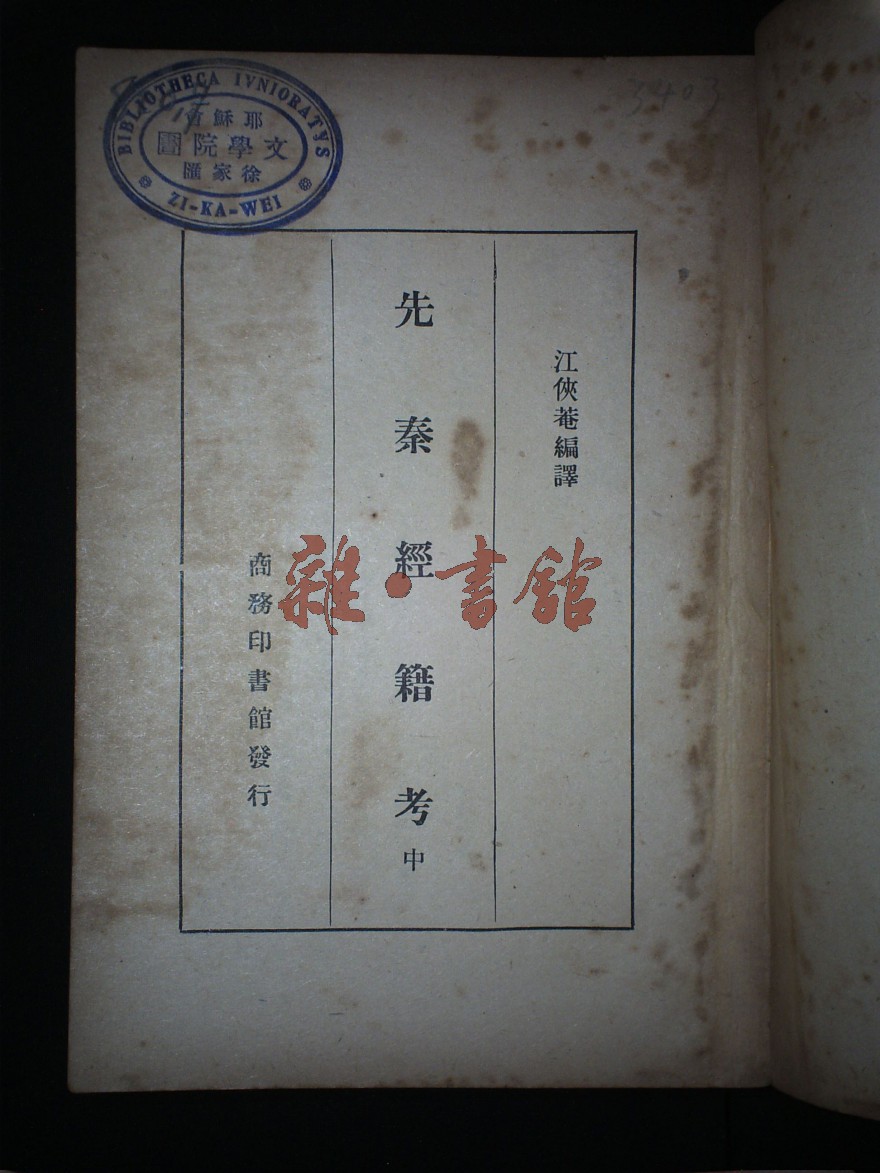 BIBLIOTHECA IVNIORATVS
耶穌會
文學院圖
徐家匯
ZI-KA-WEI
3403
江俠菴編譯
先秦經籍考 中
商務印書館發行
雜·書館